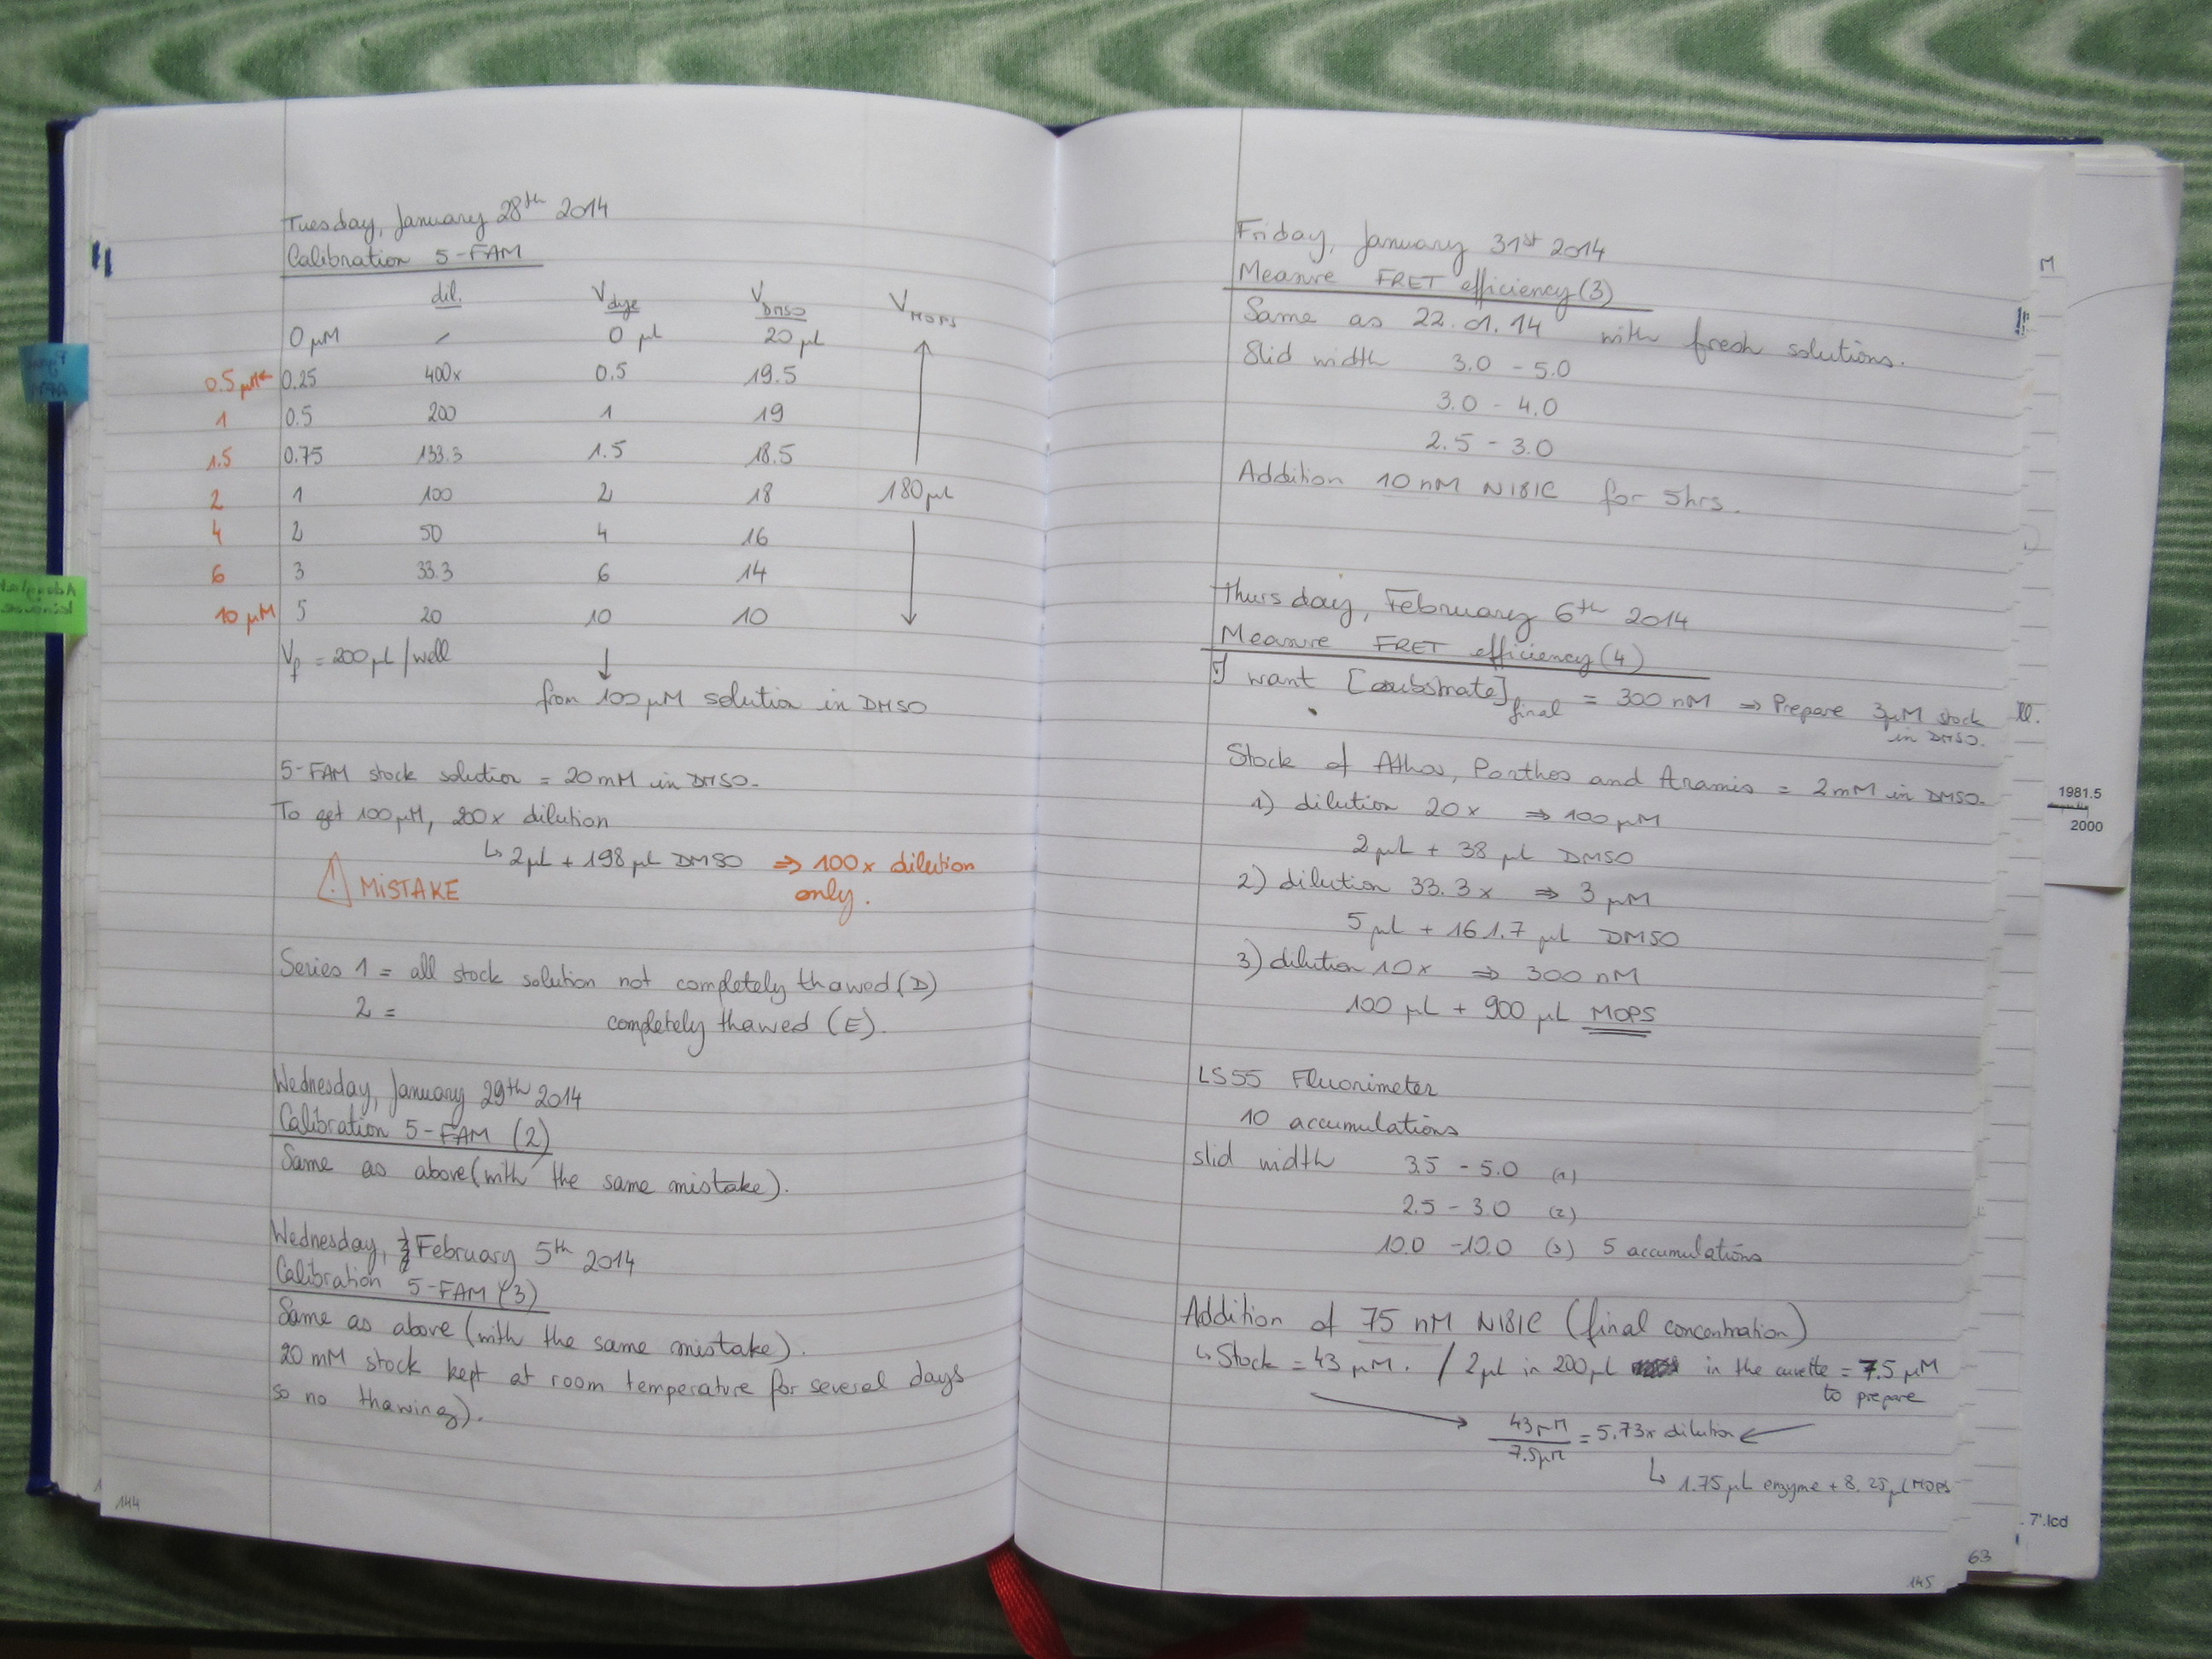 Tuesday, January 28th 2014
Calibration 5-FAM
dil. Vdye VDMSO VMOPS
0 µM / 0 µL 20 µL
0.5 µM ← 0.25 400x 0.5 19.5
1 0.5 200 1 19
1.5 0.75 133.3 1.5 18.5
2 1 100 2 18 180 µL
4 2 50 4 16
6 3 33.3 6 14
10 µM 5 20 10 10
Vf = 200 µL / well ↓
from 100 µM solution in DMSO
5-FAM stock solution = 20 mM in DMSO.
To get 100 µM, 200x dilution
↳ 2 µL + 198 µL DMSO ⇒ 100x dilution
⚠ MISTAKE only.
Series 1 = all stock solution not completely thawed (D)
2 = completely thawed (E).
Wednesday, January 29th 2014
Calibration 5-FAM (2)
Same as above (with the same mistake).
Wednesday, February 5th 2014
Calibration 5-FAM (3)
Same as above (with the same mistake).
20 mM stock kept at room temperature for several days
so no thawing).
144
Friday, January 31st 2014
Measure FRET efficiency (3)
Same as 22.01.14 with fresh solutions.
Slid width 3.0 - 5.0
3.0 - 4.0
2.5 - 3.0
Addition 10 nM N181C for 5hrs.
Thursday, February 6th 2014
Measure FRET efficiency (4)
I want [substrate]final = 300 nM ⇒ Prepare 3µM stock
in DMSO.
Stock of Athos, Porthos and Aramis = 2 mM in DMSO.
1) dilution 20x ⇒ 100 µM
2 µL + 38 µL DMSO
2) dilution 33.3x ⇒ 3 µM
5 µL + 161.7 µL DMSO
3) dilution 10x ⇒ 300 nM
100 µL + 900 µL MOPS
LS55 Fluorimeter
10 accumulations
slid width 3.5 - 5.0 (1)
2.5 - 3.0 (2)
10.0 - 10.0 (3) 5 accumulations
Addition of 75 nM N181C (final concentration)
↳ Stock = 43 µM. / 2 µL in 200 µL in the cuvette = 7.5 µM
to prepare
43 µM / 7.5 µM = 5.73x dilution
↳ 1.75 µL enzyme + 8.25 µL MOPS
145
63
M
1981.5
2000
7'.lcd